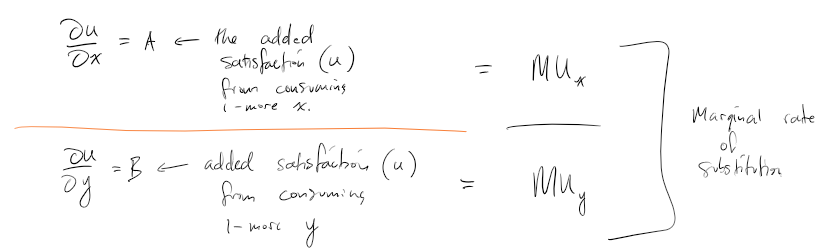 ∂u/∂x = A ← the added
satisfaction (u)
from consuming
1-more x.
= MUx
∂u/∂y = B ← added satisfaction (u)
from consuming
1-more y
= MUy
Marginal rate
of
substitution